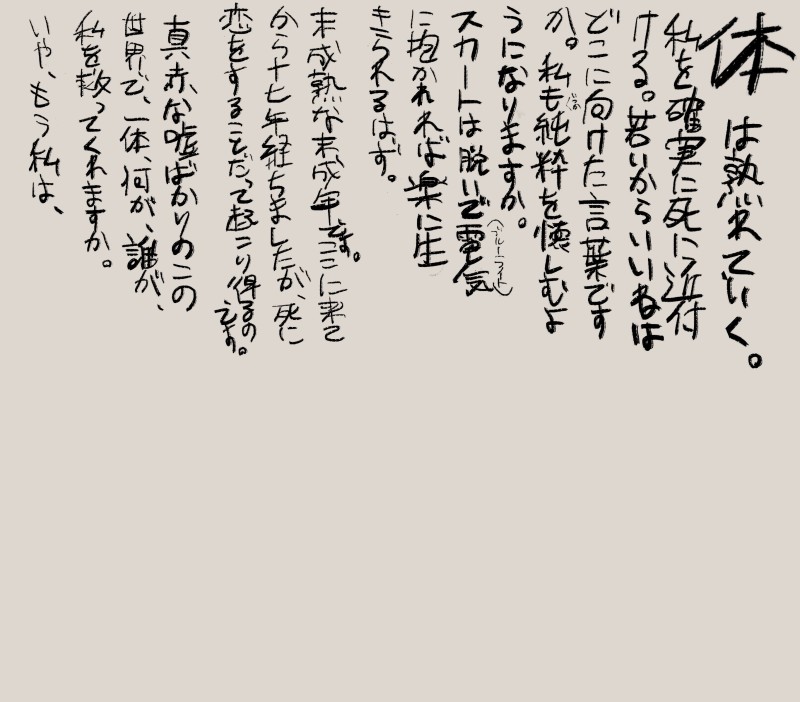 体は熟れていく。
私を確実に死に近付
ける。若いからいいねは
どこに向けた言葉です
か。私も純粋を懐しむよ
うになりますか。
スカートは脱いで電気
に抱かれれば楽に生
きられるはず。
未成熟な未成年です。ここに来て
から十七年経ちましたが、死に
恋をすることだって起こり得るのです。
真赤な嘘ばかりのこの
世界で、一体、何が、誰が、
私を救ってくれますか。
いや、もう私は、